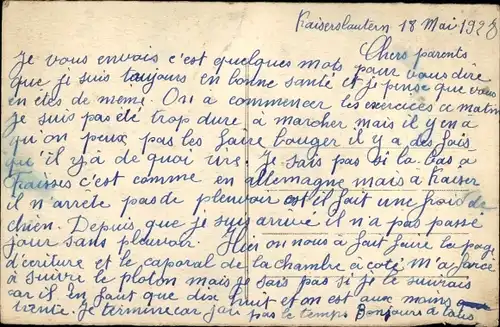 Kaiserslautern 18 Mai 192
Chers parents
Je vous envois c'est quelques mots pour vous dire
que je suis toujours en bonne santé et je pense que vous
en etes de meme. On a commencer les exercices ce matin
je suis pas été trop dure a marcher mais il y en a
qu'on peux pas les faire bouger il y a des fois
qu'il y a de quoi rire. Je sais pas si la bas a
Fraisses c'est comme en allemagne mais a Kaiser
il n'arrête pas de pleuvoir et il fait une froid de
chien. Depuis que je suis arrivé il n'a pas passé
jour sans pleuvoir. Hier on nous a fait faire la page
d'ecriture et le caporal de la chambre a coté m'a forcé
a suivre le ploton mais je sais pas si je le suivrais
car il en faut que dix huit et on est aux moins
vente. Je termine car j'ai pas le temps Bonjours a tous